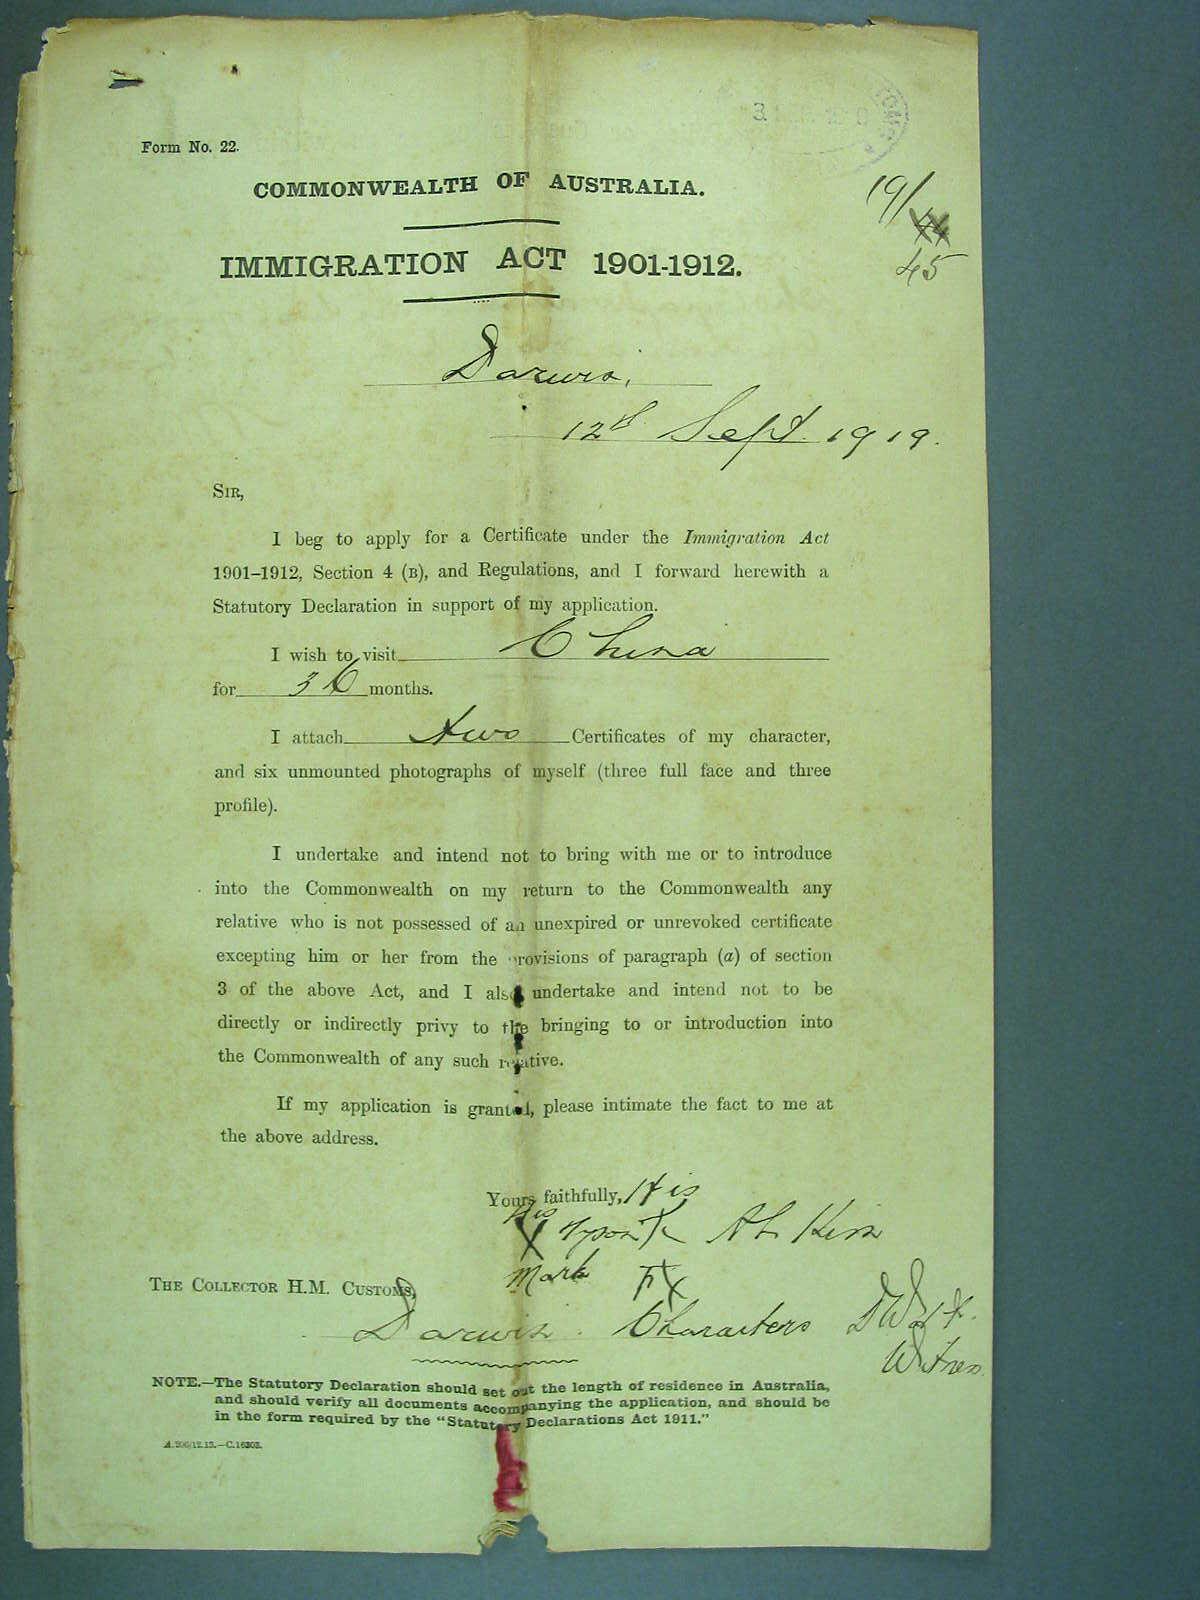 Form No. 22.
COMMONWEALTH OF AUSTRALIA.
19/
45
IMMIGRATION ACT 1901-1912.
Darwin,
12th Sept. 1919.
SIR,
I beg to apply for a Certificate under the Immigration Act
1901–1912, Section 4 (B), and Regulations, and I forward herewith a
Statutory Declaration in support of my application.
I wish to visit China
for 36 months.
I attach two Certificates of my character,
and six unmounted photographs of myself (three full face and three
profile).
I undertake and intend not to bring with me or to introduce
into the Commonwealth on my return to the Commonwealth any
relative who is not possessed of an unexpired or unrevoked certificate
excepting him or her from the provisions of paragraph (a) of section
3 of the above Act, and I also undertake and intend not to be
directly or indirectly privy to the bringing to or introduction into
the Commonwealth of any such relative.
If my application is granted, please intimate the fact to me at
the above address.
Yours faithfully, His
His
X Ah Kim
Mark
THE COLLECTOR H.M. CUSTOMS,
Darwin. Characters
Witness
NOTE.—The Statutory Declaration should set out the length of residence in Australia,
and should verify all documents accompanying the application, and should be
in the form required by the "Statutory Declarations Act 1911."